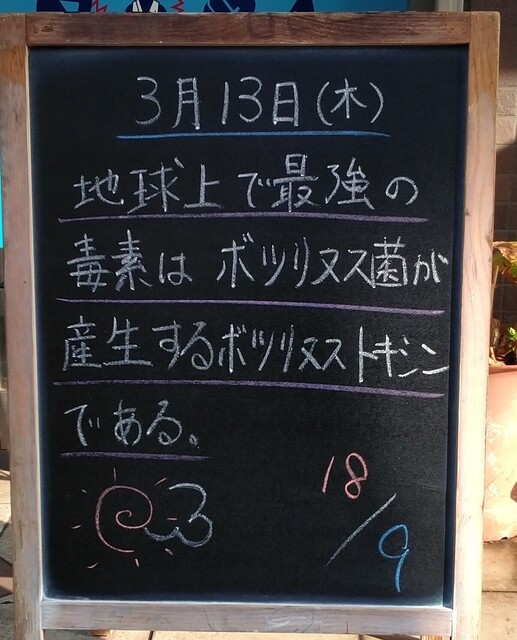 3月13日(木)
地球上で最強の
毒素は ボツリヌス菌が
産生するボツリヌストキシン
である。
18/9